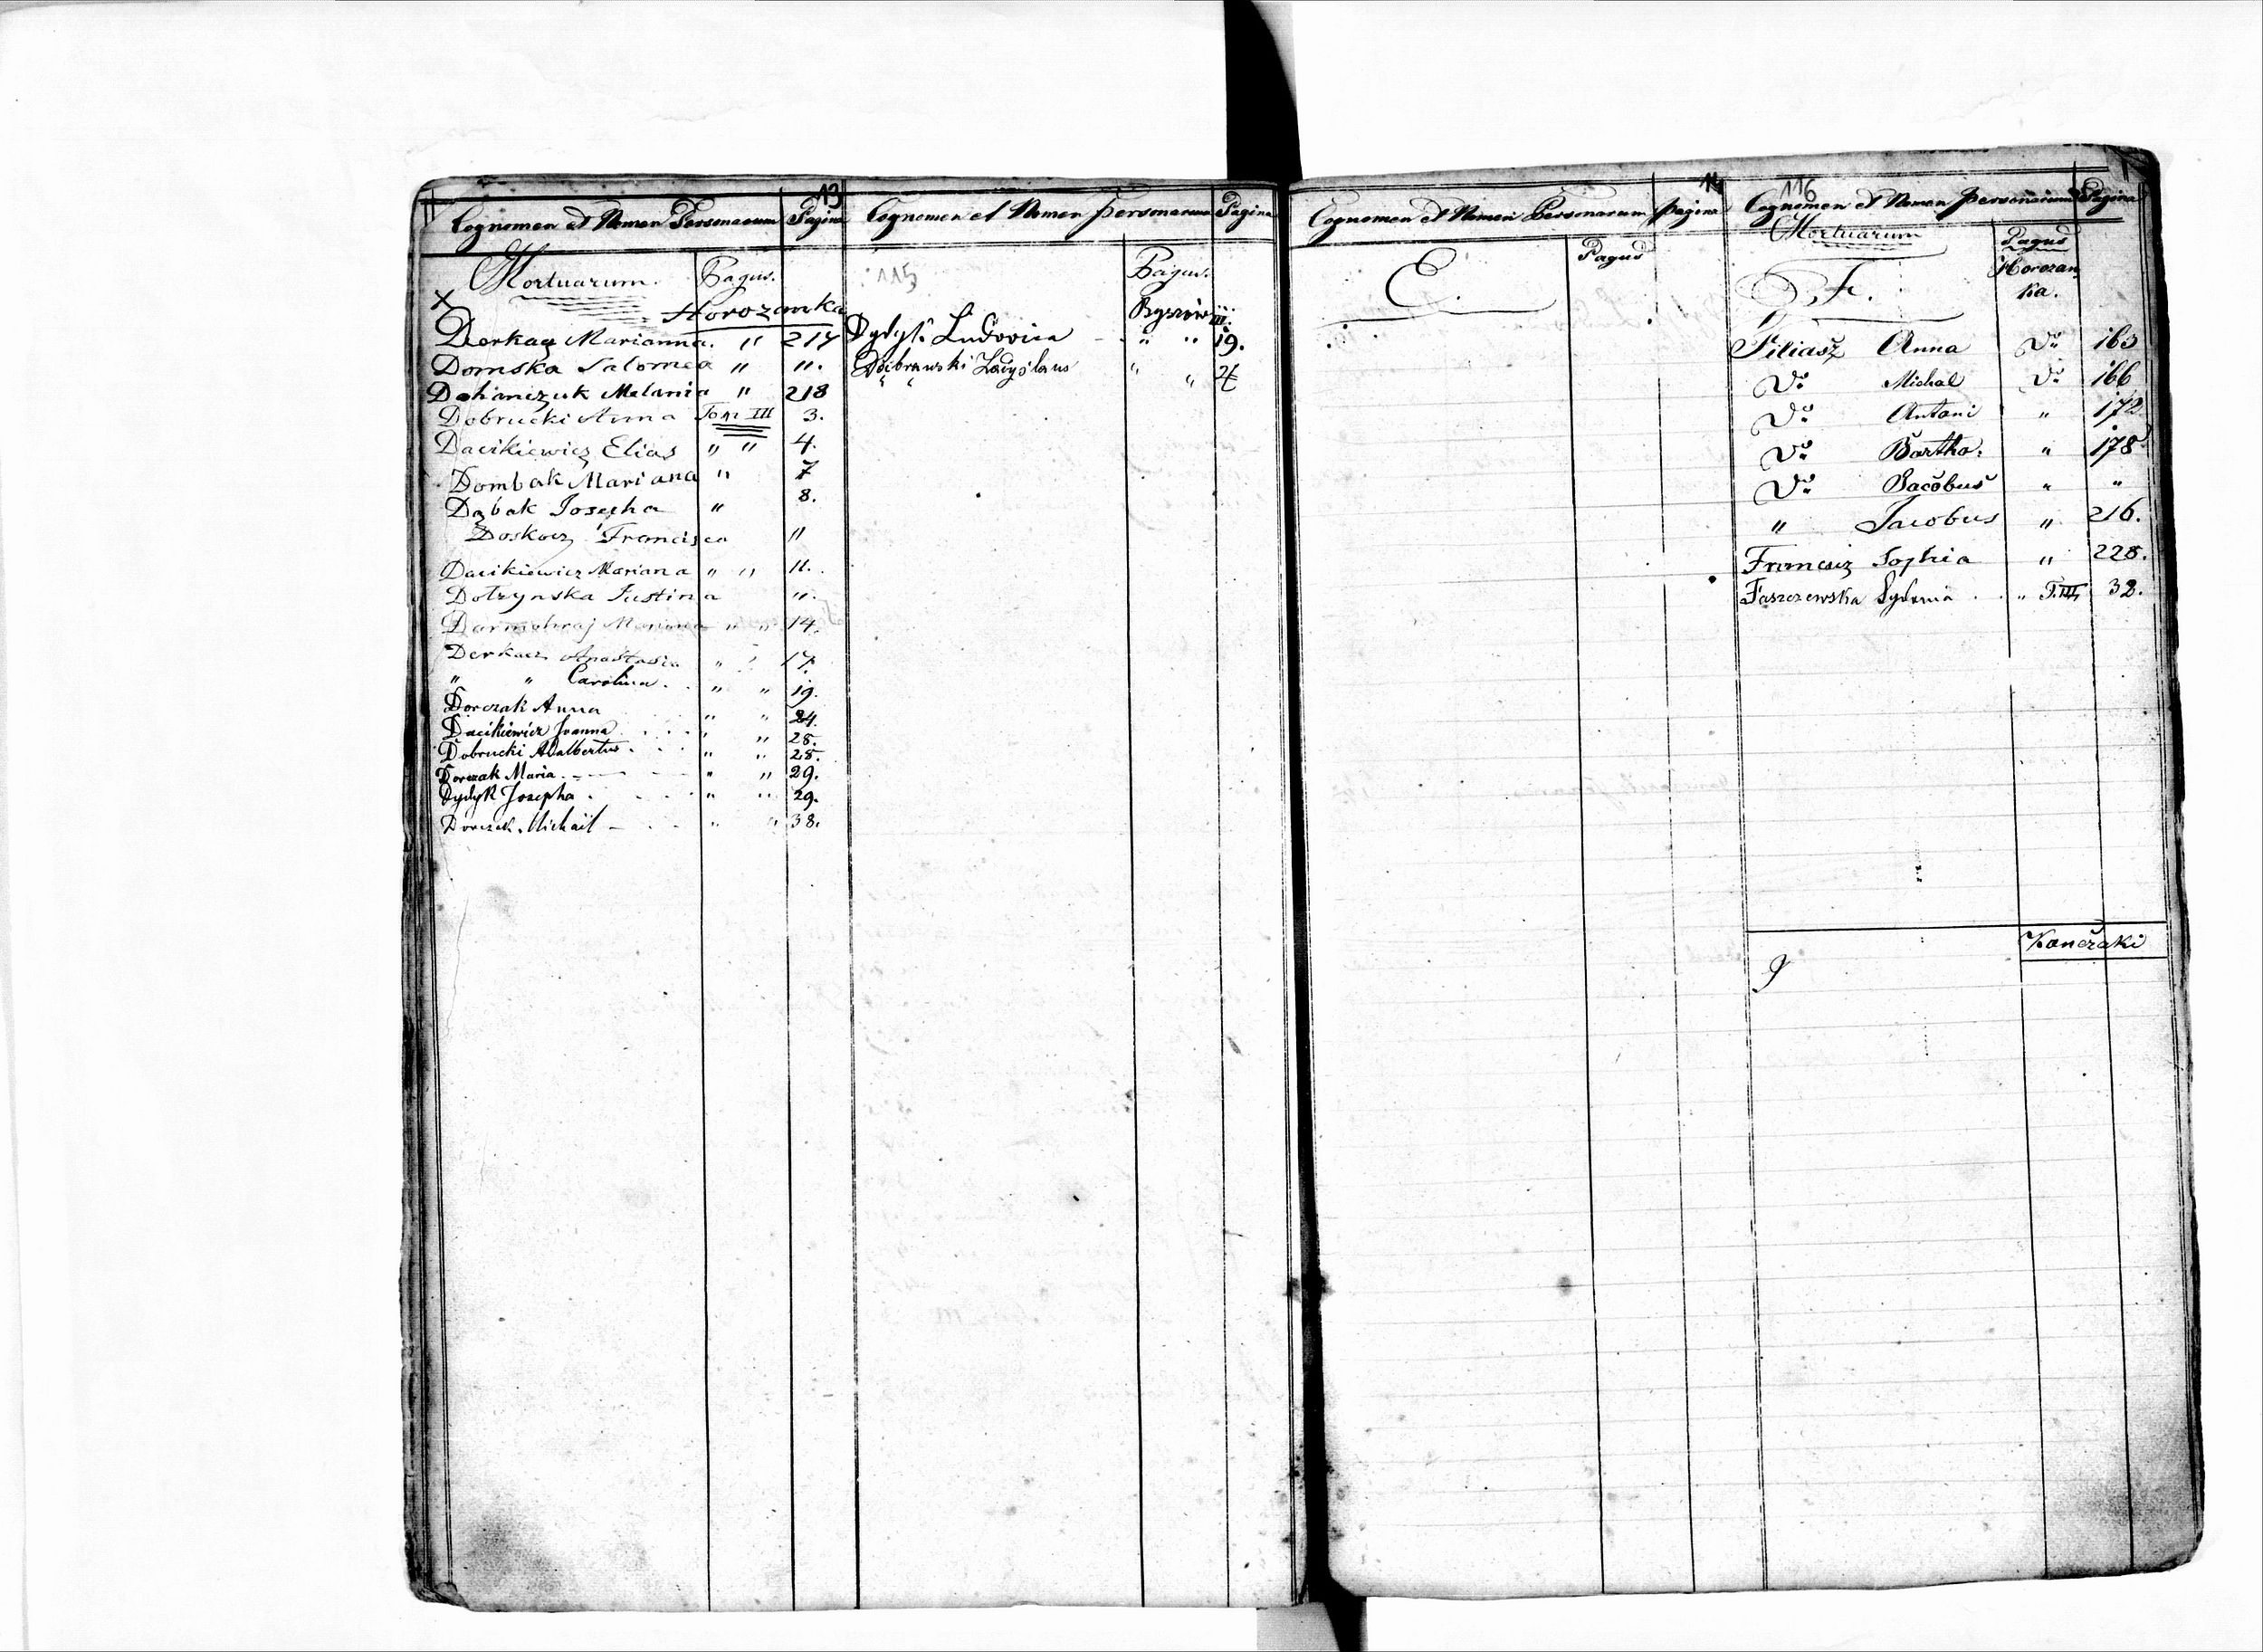 13
Cognomen et Nomen Personarum Pagina
Mortuarum. Pagus.
Horozanka
Derkacz Marianna. " 217
Domska Salomea " ".
Dohanczuk Melania " 218
Dobrucki Anna Tom III 3.
Dacikiewicz Elias " " 4.
Dombak Mariana " 7
Dąbak Josepha " 8.
Doskocz Francisca "
Dacikiewicz Mariana " " 11.
Dolzynska Justina ".
Mariana " " 14.
Derkacz Anastasia " 17.
" " Carolina. " " 19.
Dorczak Anna " " 24.
Dacikiewicz Joanna " " 28.
Dobrucki Adalbertus. " " 28.
Dorczak Maria " " 29.
Dydyk Josepha " " 29.
Dorczak Michail " " 38.
Cognomen et Nomen Personarum Pagina
115 Pagus.
III.
Dydyk Ludovica " " 19.
Ladyslaus " "
14
Cognomen et Nomen Personarum Pagina
E. Pagus
116
Cognomen et Nomen Personarum Pagina
Mortuarum Pagus
F. Horozan
ka.
Filiasz Anna Do 163
Do Michal Do 166
Do Antoni " 172
Do Bartho. " 178
Do Jacobus " "
" Jacobus " 216.
Francisz Sophia " 228.
Faszczewska " T.III 32.
Konczaki